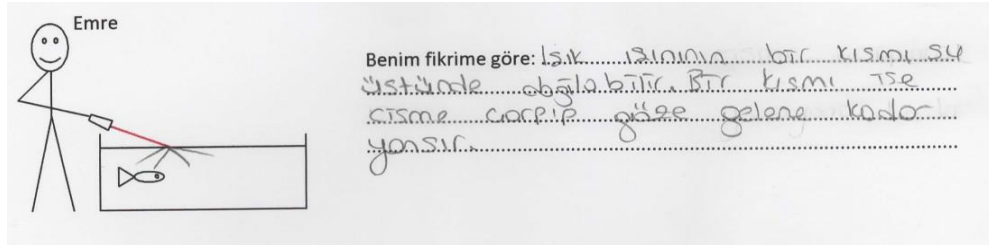 Emre
Benim fikrime göre: Işık ışınının bir kısmı su
üstünde dağılabilir. Bir kısmı ise
cisme çarpıp göze gelene kadar
yansır.